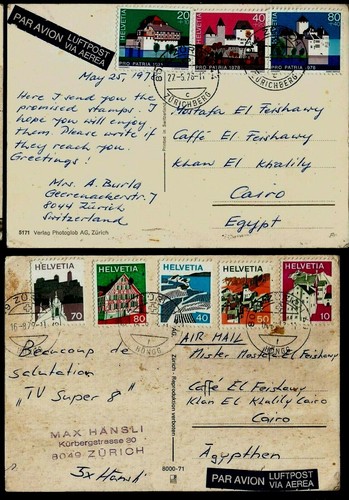 PAR AVION LUFTPOST
VIA AEREA
HELVETIA HELVETIA HELVETIA
20 40 80
PRO PATRIA 1976 PRO PATRIA 1976 PRO PATRIA 1976
27-5.76-
ZÜRICHBERG
May 25, 1976
Here I send you the
promised stamps. I
hope you will enjoy
them. Please write if
they reach you.
Greetings!
Mrs. A. Burla
8044 Zürich
Switzerland
5171 Verlag Photoglob AG, Zürich
Printed in Switzerland
Mostafa El Feishawy
Caffé El Feishawy
Khan El Khalily
Cairo
Egypt
HELVETIA HELVETIA HELVETIA HELVETIA HELVETIA
70 80 40 50 10
HÖNGG
Beaucoup de
salutation
"TV Super 8"
MAX HÄNSLI
Kürbergstrasse 30
8049 ZÜRICH
8000-71
Zürich - Reproduktion verboten
AIR MAIL
Mister El Feishawy
Caffe El Feishawy
Klan El Khalily Cairo
Cairo
Ägypthen
PAR AVION LUFTPOST
VIA AEREA